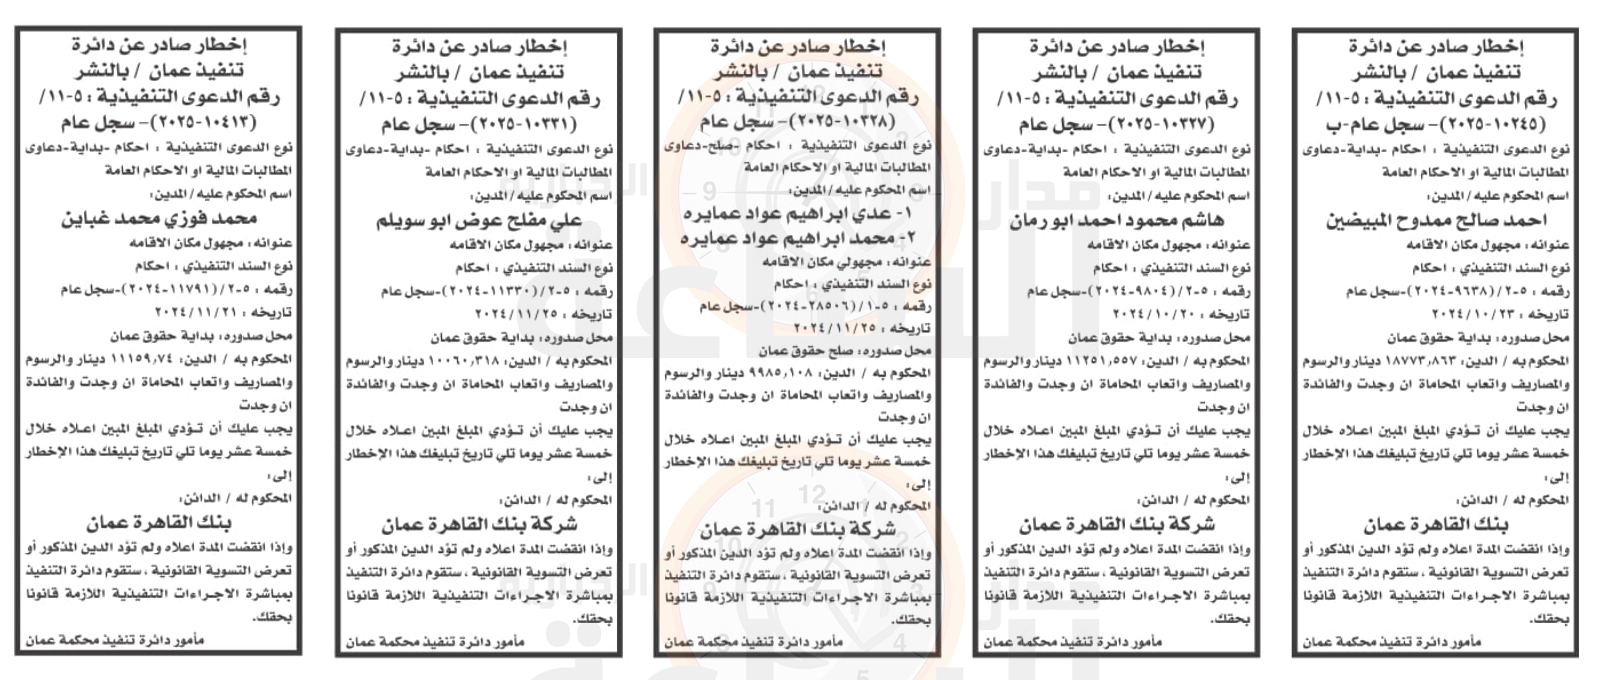 إخطار صادر عن دائرة
تنفيذ عمان / بالنشر
رقم الدعوى التنفيذية : ٥-١١/
(١٠٢٤٥-٢٠٢٥)- سجل عام-ب
نوع الدعوى التنفيذية : احكام -بداية-دعاوى
المطالبات المالية او الاحكام العامة
اسم المحكوم عليه / المدين:
احمد صالح ممدوح المبيضين
عنوانه : مجهول مكان الاقامه
نوع السند التنفيذي : احكام
رقمه : ٥-٢/(٩٦٣٨-٢٠٢٤)-سجل عام
تاريخه : ٢٠٢٤/١٠/٢٣
محل صدوره: بداية حقوق عمان
المحكوم به / الدين: ١٨٧٧٣,٨٦٣ دينار والرسوم
والمصاريف واتعاب المحاماة ان وجدت والفائدة
ان وجدت
يجب عليك أن تؤدي المبلغ المبين اعلاه خلال
خمسة عشر يوما تلي تاريخ تبليغك هذا الإخطار
إلى:
المحكوم له / الدائن:
بنك القاهرة عمان
وإذا انقضت المدة اعلاه ولم تؤد الدين المذكور أو
تعرض التسوية القانونية ، ستقوم دائرة التنفيذ
بمباشرة الاجراءات التنفيذية اللازمة قانونا
بحقك.
مأمور دائرة تنفيذ محكمة عمان
إخطار صادر عن دائرة
تنفيذ عمان / بالنشر
رقم الدعوى التنفيذية : ٥-١١/
(١٠٣٢٧-٢٠٢٥)- سجل عام
نوع الدعوى التنفيذية : احكام -بداية-دعاوى
المطالبات المالية او الاحكام العامة
اسم المحكوم عليه / المدين:
هاشم محمود احمد ابو رمان
عنوانه : مجهول مكان الاقامه
نوع السند التنفيذي : احكام
رقمه : ٥-٢/(٩٨٠٤-٢٠٢٤)-سجل عام
تاريخه : ٢٠٢٤/١٠/٢٠
محل صدوره: بداية حقوق عمان
المحكوم به / الدين: ١١٢٥١,٥٥٧ دينار والرسوم
والمصاريف واتعاب المحاماة ان وجدت والفائدة
ان وجدت
يجب عليك أن تؤدي المبلغ المبين اعلاه خلال
خمسة عشر يوما تلي تاريخ تبليغك هذا الإخطار
إلى:
المحكوم له / الدائن:
شركة بنك القاهرة عمان
وإذا انقضت المدة اعلاه ولم تؤد الدين المذكور أو
تعرض التسوية القانونية ، ستقوم دائرة التنفيذ
بمباشرة الاجراءات التنفيذية اللازمة قانونا
بحقك.
مأمور دائرة تنفيذ محكمة عمان
إخطار صادر عن دائرة
تنفيذ عمان / بالنشر
رقم الدعوى التنفيذية : ٥-١١/
(١٠٣٢٨-٢٠٢٥)- سجل عام
نوع الدعوى التنفيذية : احكام -صلح-دعاوى
المطالبات المالية او الاحكام العامة
اسم المحكوم عليه / المدين:
١- عدي ابراهيم عواد عمايره
٢- محمد ابراهيم عواد عمايره
عنوانه : مجهولي مكان الاقامه
نوع السند التنفيذي : احكام
رقمه : ٥-١/(٢٨٥٠٦-٢٠٢٤)-سجل عام
تاريخه : ٢٠٢٤/١١/٢٥
محل صدوره: صلح حقوق عمان
المحكوم به / الدين: ٩٩٨٥,١٠٨ دينار والرسوم
والمصاريف واتعاب المحاماة ان وجدت والفائدة
ان وجدت
يجب عليك أن تؤدي المبلغ المبين اعلاه خلال
خمسة عشر يوما تلي تاريخ تبليغك هذا الإخطار
إلى:
المحكوم له / الدائن:
شركة بنك القاهرة عمان
وإذا انقضت المدة اعلاه ولم تؤد الدين المذكور أو
تعرض التسوية القانونية ، ستقوم دائرة التنفيذ
بمباشرة الاجراءات التنفيذية اللازمة قانونا
بحقك.
مأمور دائرة تنفيذ محكمة عمان
إخطار صادر عن دائرة
تنفيذ عمان / بالنشر
رقم الدعوى التنفيذية : ٥-١١/
(١٠٣٣١-٢٠٢٥)- سجل عام
نوع الدعوى التنفيذية : احكام -بداية-دعاوى
المطالبات المالية او الاحكام العامة
اسم المحكوم عليه / المدين:
علي مفلح عوض ابو سويلم
عنوانه : مجهول مكان الاقامه
نوع السند التنفيذي : احكام
رقمه : ٥-٢/(١١٣٣٠-٢٠٢٤)-سجل عام
تاريخه : ٢٠٢٤/١١/٢٥
محل صدوره: بداية حقوق عمان
المحكوم به / الدين: ١٠٠٦٠,٣١٨ دينار والرسوم
والمصاريف واتعاب المحاماة ان وجدت والفائدة
ان وجدت
يجب عليك أن تؤدي المبلغ المبين اعلاه خلال
خمسة عشر يوما تلي تاريخ تبليغك هذا الإخطار
إلى:
المحكوم له / الدائن:
شركة بنك القاهرة عمان
وإذا انقضت المدة اعلاه ولم تؤد الدين المذكور أو
تعرض التسوية القانونية ، ستقوم دائرة التنفيذ
بمباشرة الاجراءات التنفيذية اللازمة قانونا
بحقك.
مأمور دائرة تنفيذ محكمة عمان
إخطار صادر عن دائرة
تنفيذ عمان / بالنشر
رقم الدعوى التنفيذية : ٥-١١/
(١٠٤١٣-٢٠٢٥)- سجل عام
نوع الدعوى التنفيذية : احكام -بداية-دعاوى
المطالبات المالية او الاحكام العامة
اسم المحكوم عليه / المدين:
محمد فوزي محمد غباين
عنوانه : مجهول مكان الاقامه
نوع السند التنفيذي : احكام
رقمه : ٥-٢/(١١٧٩١-٢٠٢٤)-سجل عام
تاريخه : ٢٠٢٤/١١/٢١
محل صدوره: بداية حقوق عمان
المحكوم به / الدين: ١١١٥٩,٧٤ دينار والرسوم
والمصاريف واتعاب المحاماة ان وجدت والفائدة
ان وجدت
يجب عليك أن تؤدي المبلغ المبين اعلاه خلال
خمسة عشر يوما تلي تاريخ تبليغك هذا الإخطار
إلى:
المحكوم له / الدائن:
بنك القاهرة عمان
وإذا انقضت المدة اعلاه ولم تؤد الدين المذكور أو
تعرض التسوية القانونية ، ستقوم دائرة التنفيذ
بمباشرة الاجراءات التنفيذية اللازمة قانونا
بحقك.
مأمور دائرة تنفيذ محكمة عمان